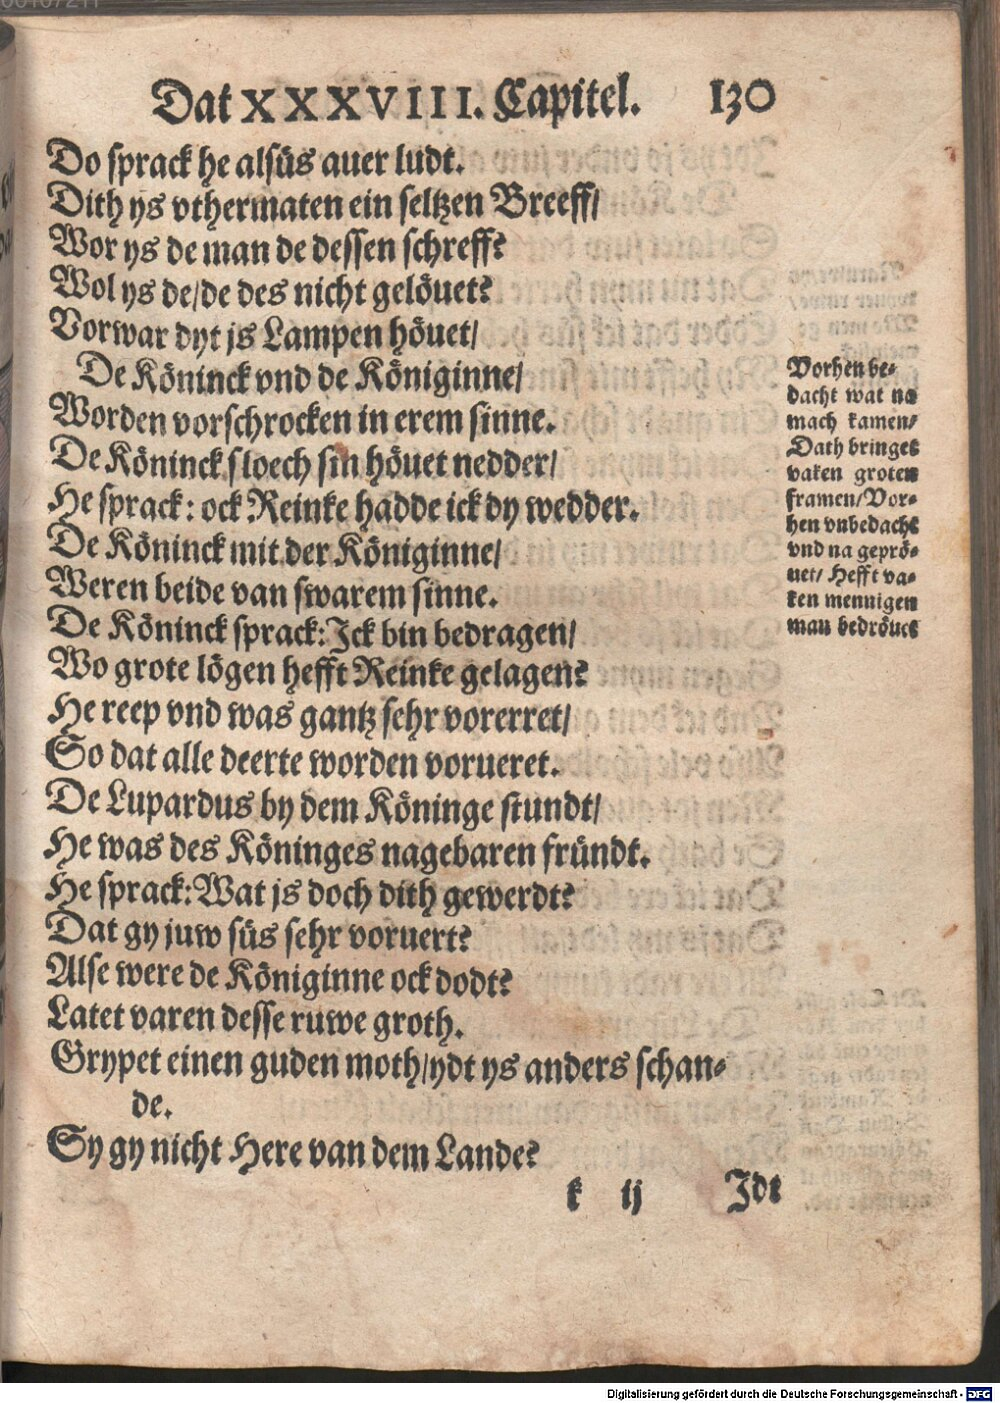 Dat XXXVIII. Capitel. 130
Do sprack he alsüs auer ludt.
Dith ys vthermaten ein seltzen Breeff/
Wor ys de man de dessen schreff?
Wol ys de/de des nicht gelöuet?
Vorwar dyt js Lampen höuet/
De Köninck vnd de Königinne/
Worden vorschrocken in erem sinne.
De Köninck sloech sin höuet nedder/
He sprack: ock Reinke hadde ick dy wedder.
De Köninck mit der Königinne/
Weren beide van swarem sinne.
De Köninck sprack: Jck bin bedragen/
Wo grote lögen hefft Reinke gelagen?
He reep vnd was gantz sehr vorerret/
So dat alle deerte worden vorueret.
De Lupardus by dem Köninge stundt/
He was des Köninges nagebaren fründt.
He sprack: Wat js doch dith gewerdt?
Dat gy juw süs sehr voruert?
Alse were de Königinne ock dodt?
Latet varen desse ruwe groth.
Grypet einen guden moth/ydt ys anders schan-
de.
Sy gy nicht Here van dem Lande?
k ij Jdt
Vorhen be-
dacht wat na
mach kamen/
Dath bringet
vaken groten
framen/Vor-
hen vnbedacht
vnd na geprö-
uet/ Hefft va-
ken mennigen
man bedröuet
Digitalisierung gefördert durch die Deutsche Forschungsgemeinschaft - DFG